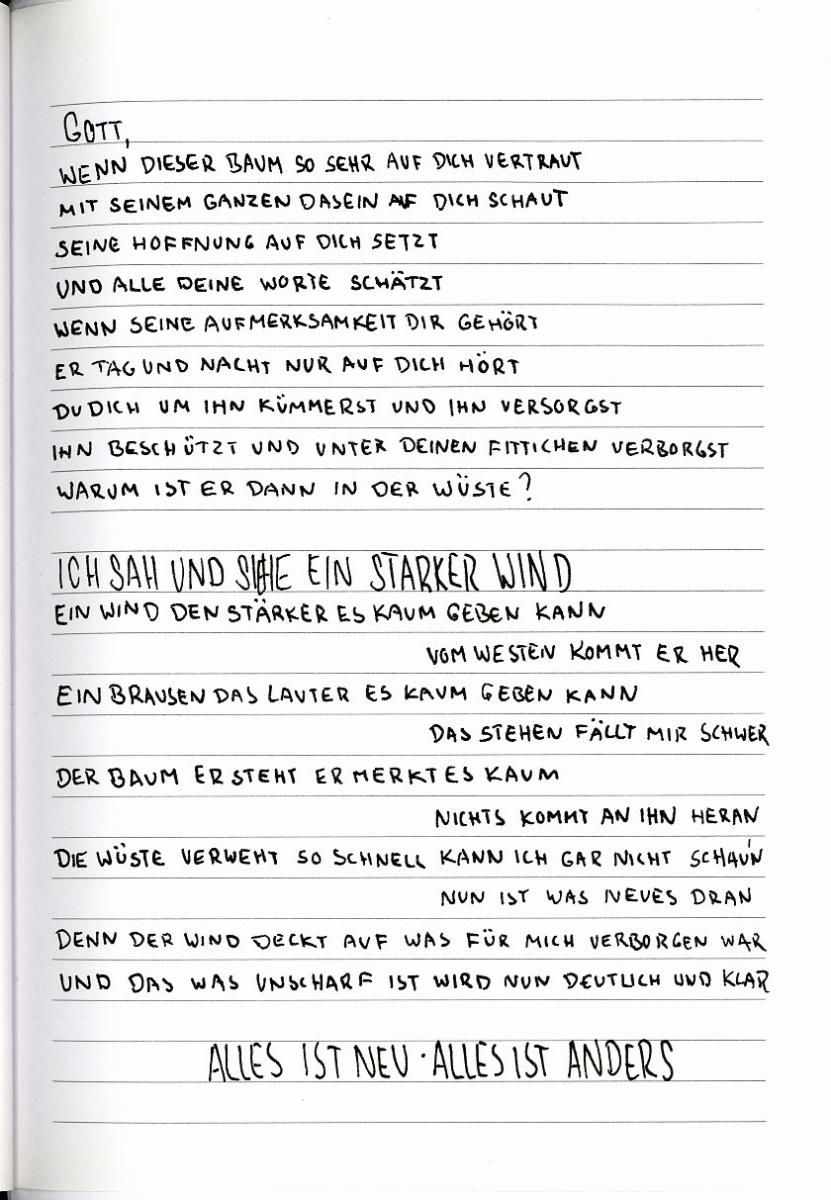 GOTT,
WENN DIESER BAUM SO SEHR AUF DICH VERTRAUT
MIT SEINEM GANZEN DASEIN AUF DICH SCHAUT
SEINE HOFFNUNG AUF DICH SETZT
UND ALLE DEINE WORTE SCHÄTZT
WENN SEINE AUFMERKSAMKEIT DIR GEHÖRT
ER TAG UND NACHT NUR AUF DICH HÖRT
DU DICH UM IHN KÜMMERST UND IHN VERSORGST
IHN BESCHÜTZT UND UNTER DEINEN FITTICHEN VERBORGST
WARUM IST ER DANN IN DER WÜSTE?
ICH SAH UND SIEHE EIN STARKER WIND
EIN WIND DEN STÄRKER ES KAUM GEBEN KANN
VOM WESTEN KOMMT ER HER
EIN BRAUSEN DAS LAUTER ES KAUM GEBEN KANN
DAS STEHEN FÄLLT MIR SCHWER
DER BAUM ER STEHT ER MERKT ES KAUM
NICHTS KOMMT AN IHN HERAN
DIE WÜSTE VERWEHT SO SCHNELL KANN ICH GAR NICHT SCHAU'N
NUN IST WAS NEUES DRAN
DENN DER WIND DECKT AUF WAS FÜR MICH VERBORGEN WAR
UND DAS WAS UNSCHARF IST WIRD NUN DEUTLICH UND KLAR
ALLES IST NEU · ALLES IST ANDERS